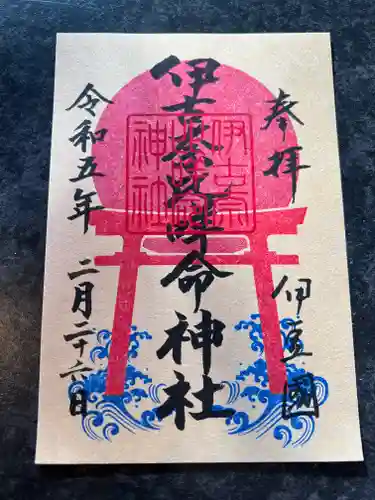 奉拝
伊豆國
伊古奈比咩命神社
令和五年
二月二十六日
伊古奈
神社